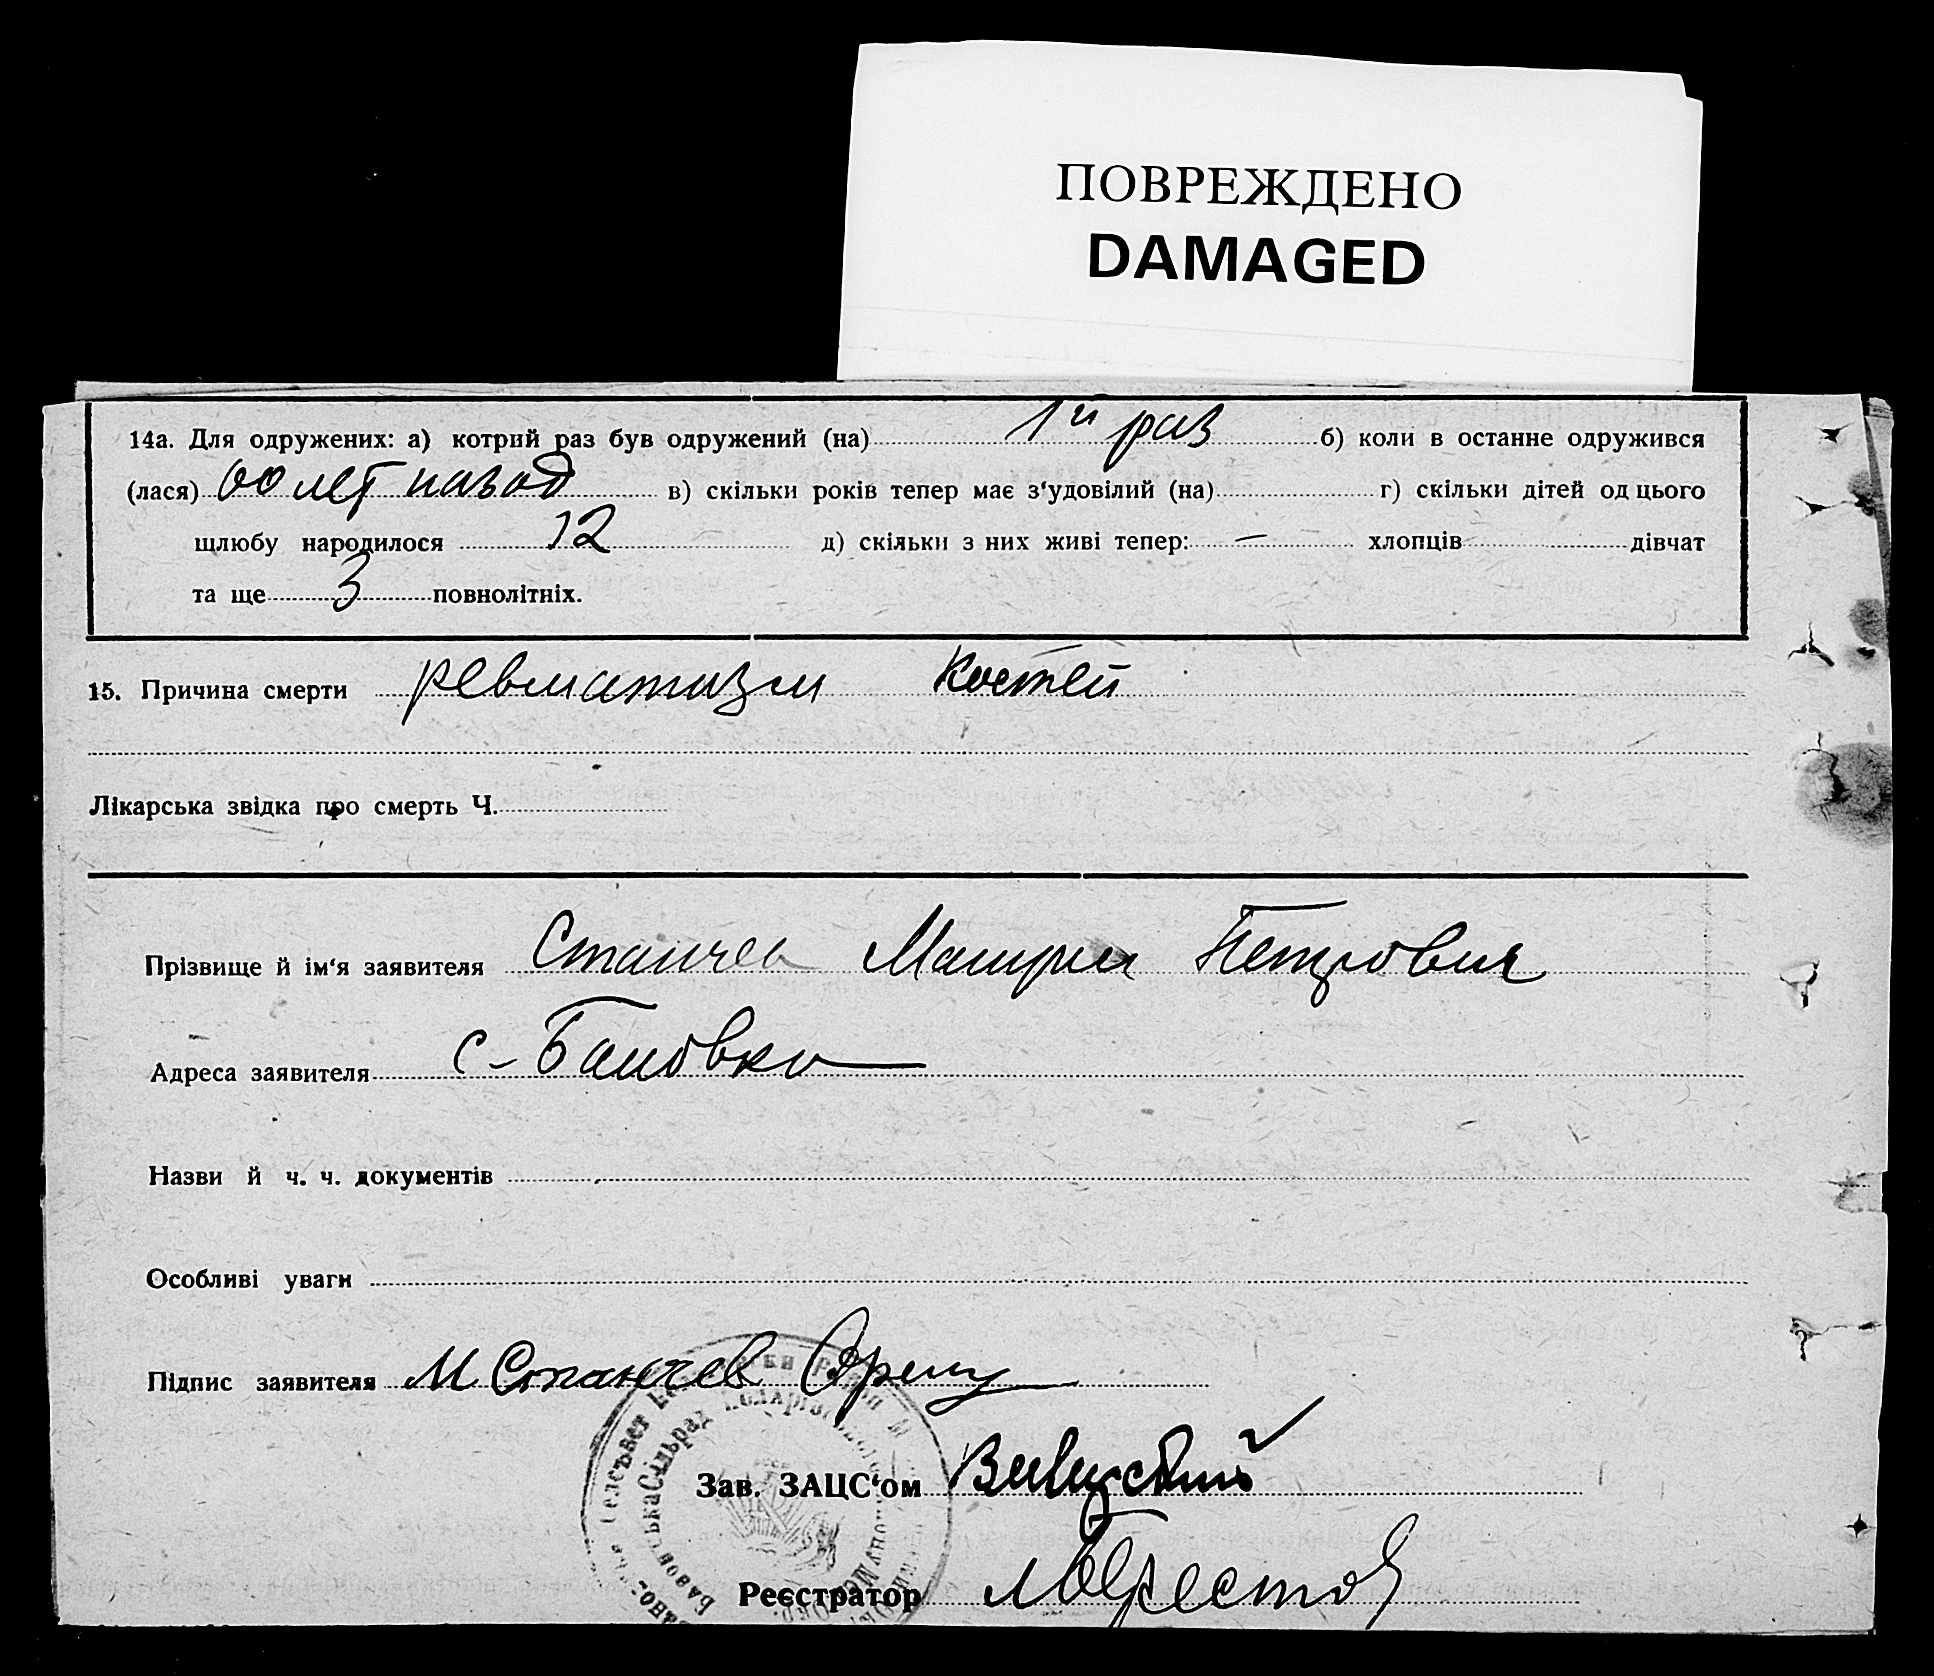 ПОВРЕЖДЕНО
DAMAGED
14а. Для одружених: а) котрий раз був одружений (на) 1й раз б) коли в останнє одружився
(лася) 60 лет назад в) скільки років тепер має з'удовілий (на) г) скільки дітей од цього
шлюбу народилося 12 д) скільки з них живі тепер: — хлопців дівчат
та ще 3 повнолітніх.
15. Причина смерти ревматизм костей
Лікарська звідка про смерть Ч.
Прізвище й ім'я заявителя Станчев Петрович
Адреса заявителя с-Бановка
Назви й ч. ч. документів
Особливі уваги
Підпис заявителя М Станчев
Зав. ЗАЦС'ом
Реєстратор